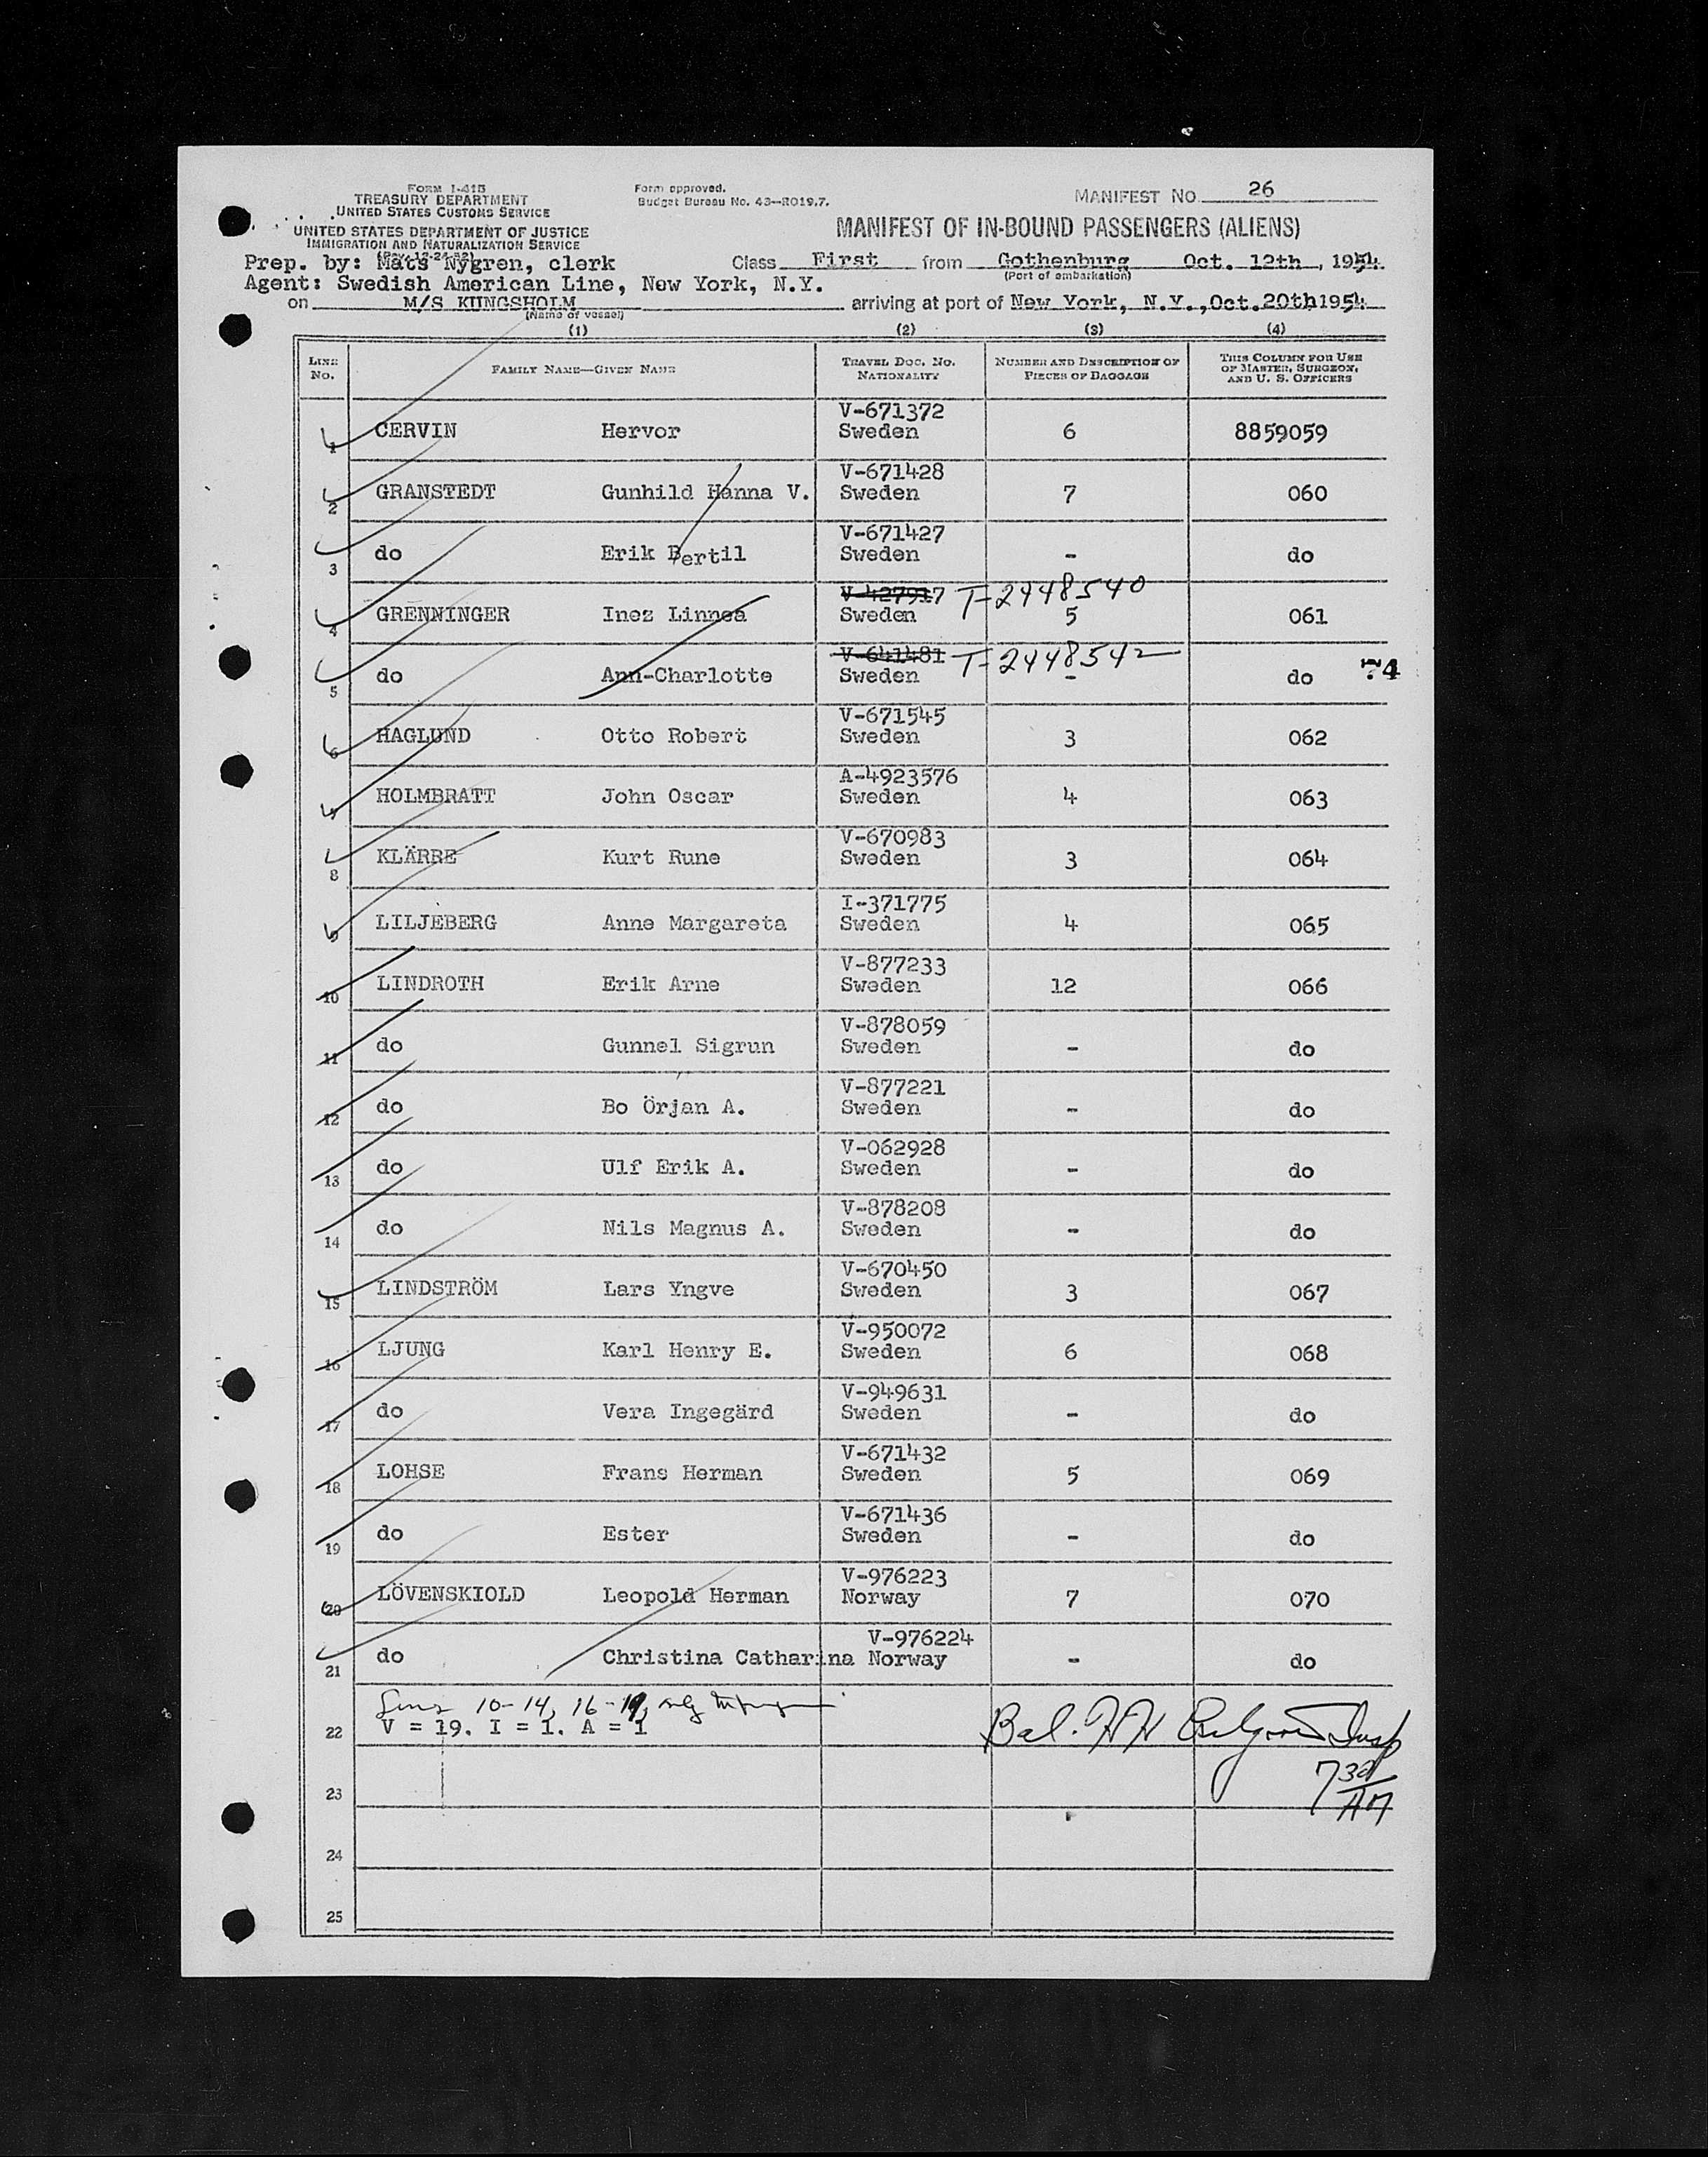 FORM I-415
TREASURY DEPARTMENT
UNITED STATES CUSTOMS SERVICE
UNITED STATES DEPARTMENT OF JUSTICE
IMMIGRATION AND NATURALIZATION SERVICE
(Rev. 12-24-52)
Form approved.
Budget Bureau No. 43-R019.7.
MANIFEST NO. 26
MANIFEST OF IN-BOUND PASSENGERS (ALIENS)
Prep. by: Mats Nygren, clerk
Class First from Gothenburg Oct. 12th, 1954
(Port of embarkation)
Agent: Swedish American Line, New York, N.Y.
on M/S KUNGSHOLM arriving at port of New York, N.Y., Oct.20th 1954
(Name of vessel)
(1) (2) (3) (4)
LINE NO. FAMILY NAME—GIVEN NAME TRAVEL DOC. NO. NATIONALITY NUMBER AND DESCRIPTION OF PIECES OF BAGGAGE THIS COLUMN FOR USE OF MASTER, SURGEON, AND U. S. OFFICERS
V-671372
1 CERVIN Hervor Sweden 6 8859059
V-671428
2 GRANSTEDT Gunhild Hanna V. Sweden 7 060
V-671427
3 do Erik Bertil Sweden - do
V-427917 T-2448540
4 GRENNINGER Inez Linnea Sweden 5 061
V-641481 T-2448542
5 do Ann-Charlotte Sweden - do 74
V-671545
6 HAGLUND Otto Robert Sweden 3 062
A-4923576
7 HOLMBRATT John Oscar Sweden 4 063
V-670983
8 KLÄRRE Kurt Rune Sweden 3 064
I-371775
9 LILJEBERG Anne Margareta Sweden 4 065
V-877233
10 LINDROTH Erik Arne Sweden 12 066
V-878059
11 do Gunnel Sigrun Sweden - do
V-877221
12 do Bo Örjan A. Sweden - do
V-062928
13 do Ulf Erik A. Sweden - do
V-878208
14 do Nils Magnus A. Sweden - do
V-670450
15 LINDSTRÖM Lars Yngve Sweden 3 067
V-950072
16 LJUNG Karl Henry E. Sweden 6 068
V-949631
17 do Vera Ingegärd Sweden - do
V-671432
18 LOHSE Frans Herman Sweden 5 069
V-671436
19 do Ester Sweden - do
V-976223
20 LÖVENSKIOLD Leopold Herman Norway 7 070
V-976224
21 do Christina Catharina Norway - do
Lines 10-14, 16-19,
22 V = 19. I = 1. A = 1 Bal. Insp
23 7 30 AM
24
25